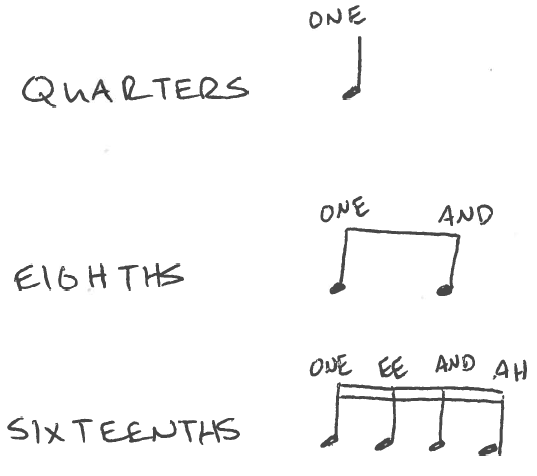 ONE
QUARTERS
ONE AND
EIGHTHS
ONE EE AND AH
SIXTEENTHS